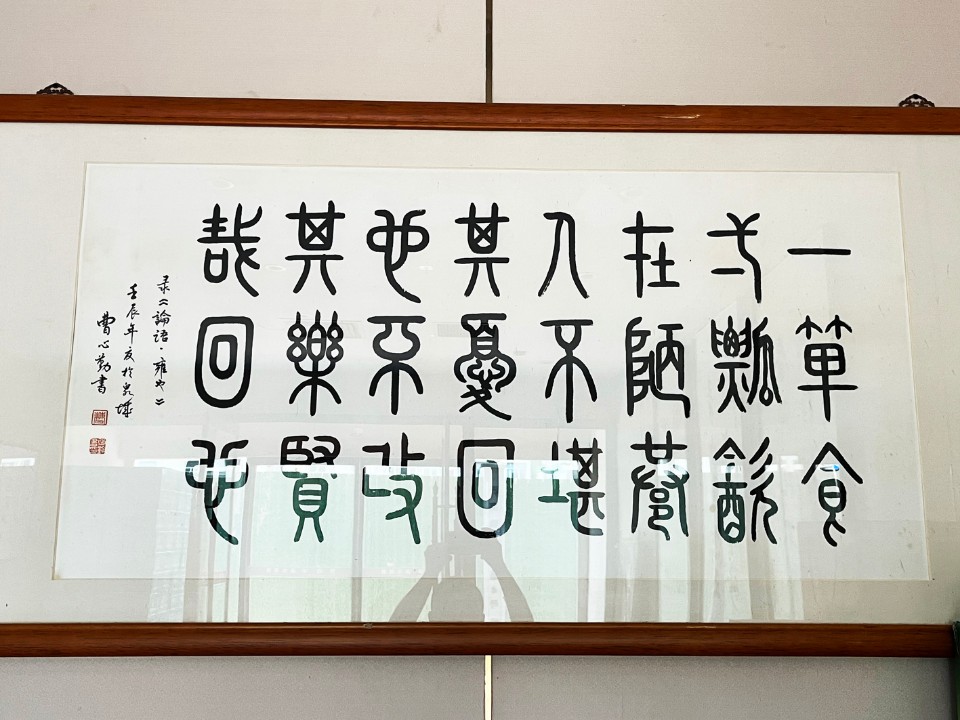 一簞食
弌瓢飲
在陋巷
人不堪
其憂回
也不改
其樂賢
哉回也
录《論語·雍也》
壬辰年夏於泉城
曹心勤書